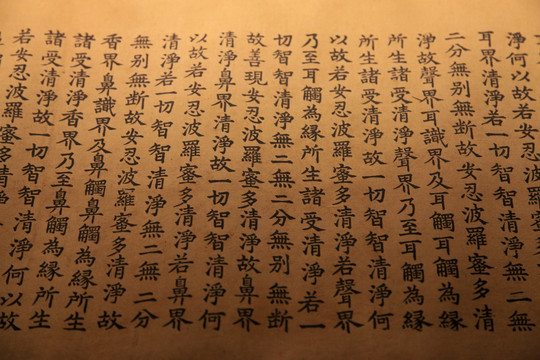 淨何以故若安
耳界清淨若一切智智清淨無二無
二分無別無斷故安忍波羅蜜多清
淨故聲界耳識界及耳觸耳觸為緣
所生諸受清淨聲界乃至耳觸為緣
所生諸受清淨故一切智智清淨何
以故若安忍波羅蜜多清淨若聲界
乃至耳觸為緣所生諸受清淨若一
切智智清淨無二無二分無別無斷
故善現安忍波羅蜜多清淨故鼻界
清淨鼻界清淨故一切智智清淨何
以故若安忍波羅蜜多清淨若鼻界
清淨若一切智智清淨無二無二分
無別無斷故安忍波羅蜜多清淨故
香界鼻識界及鼻觸鼻觸為緣所生
諸受清淨香界乃至鼻觸為緣所生
諸受清淨故一切智智清淨何以故
若安忍波羅蜜多清